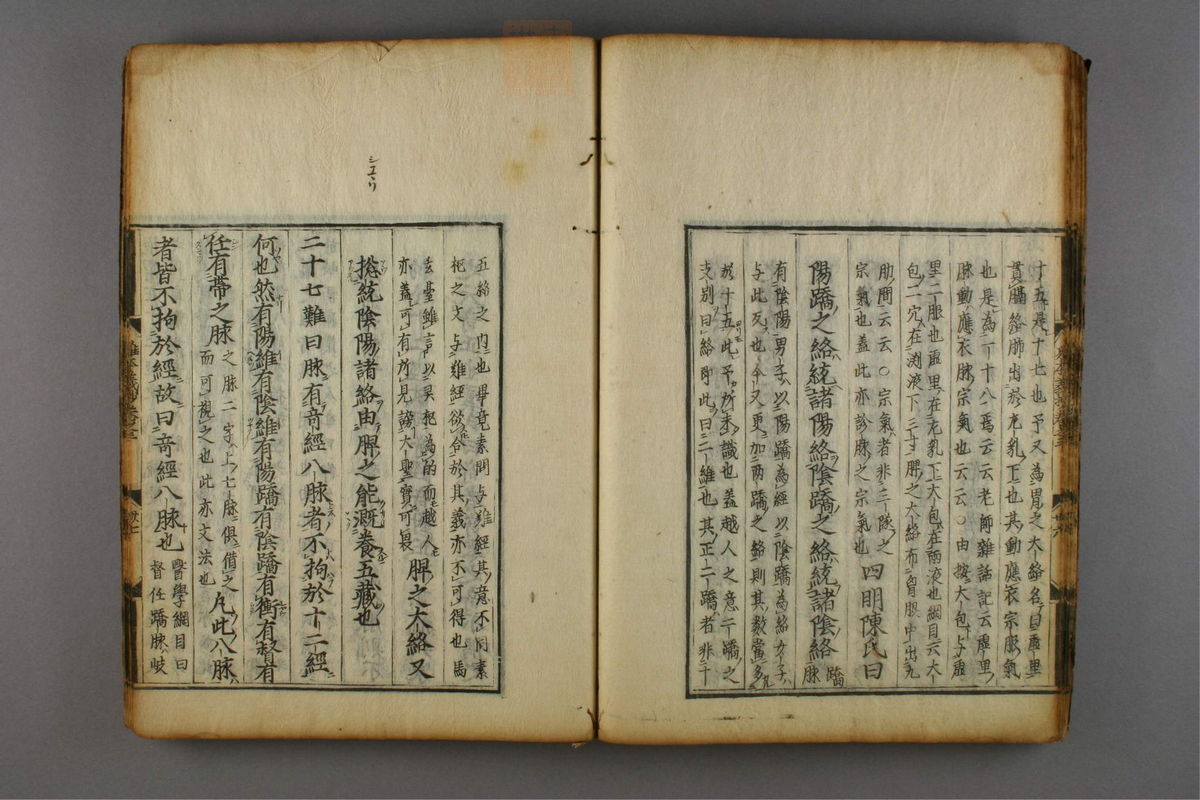 十五是十七也予又為胃之大絡名曰虛里
貫膈絡肺出於左乳下也其動應衣宗脈氣
也是為二十八焉云云老師雜話記云虛里
脉動應衣脉宗氣也云云○由按大包与虛
里二脈也虛里在左乳下大包在兩液也綱目云大
包一穴在渕液下三寸脾之大絡布胷脇中出九
肋間云云○宗氣者非三隧之
宗氣也蓋此亦診脉之宗氣也 四明陳氏曰
陽蹻之絡統諸陽絡陰蹻之絡統諸陰絡 蹻脉
有陰陽男子以陽蹻為經以陰蹻為絡女子
与此反也今又更加兩蹻之絡則其數當多
於十五此予所未識也蓋越人之意二蹻之
支別曰絡即此曰二維也其正二蹻者非十
五絡之内也畢竟素問与難經其意不同素
祀之文与難經欲合於其義亦不可得也馬
玄臺雖言以灵枢為的而越人
亦蓋可有所見謗大聖實可畏 脾之大絡又
揔統陰陽諸絡由脾之能溉養五藏也
二十七難曰脉有奇經八脉者不拘於十二經
何也然有陽維有陰維有陽蹻有陰蹻有衝有督有
任有帶之脉 之脉二字上七脉俱借之而可視之也此亦文法也 凡此八脉
者皆不拘於經故曰奇經八脉也 醫學綱目曰督任蹻脉岐